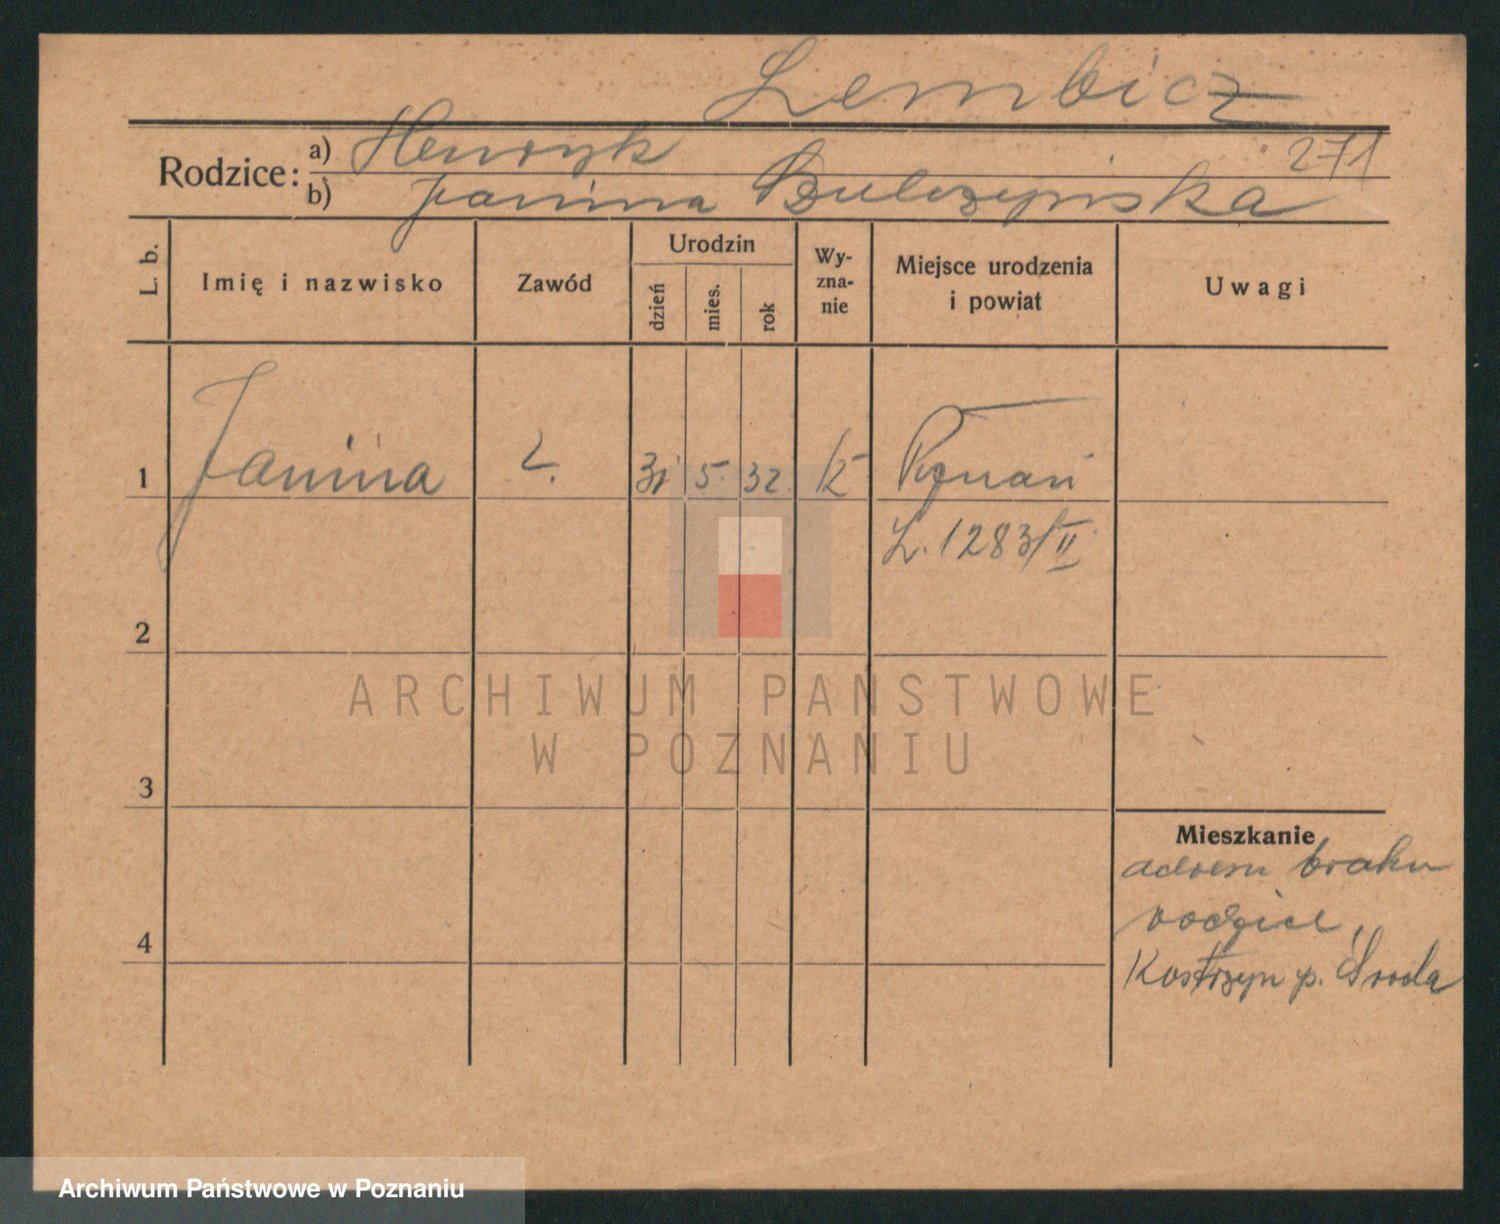 Lembicz
271
Rodzice: a) Henryk
b) Janina Bulczyńska
L. b.
Imię i nazwisko
Zawód
Urodzin
dzień
mies.
rok
Wy-
zna-
nie
Miejsce urodzenia
i powiat
Uwagi
1 Janina 2. 31 5. 32 Poznań
L. 1283/II
2
3
4
Mieszkanie
adresu braku
rodzice,
Kostrzyn p. Środa
ARCHIWUM PAŃSTWOWE
W POZNANIU
Archiwum Państwowe w Poznaniu